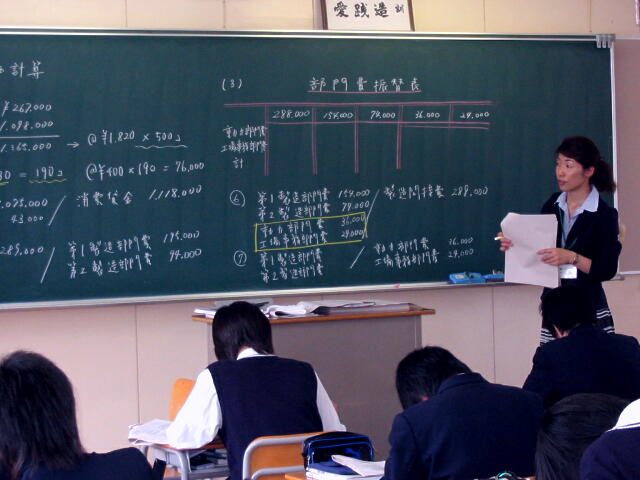 愛践造
訓
計算
¥267,000
1,098,000
1,365,000
→ @¥1,820 × 500コ
= 190コ
@¥400 × 190 = 76,000
消費賃金 1,118,000
1,075,000
43,000
289,000
第1製造部門費 195,000
第2製造部門費 94,000
(3) 部門費振替表
288,000 154,000 74,000 36,000 24,000
動力部門費
工場事務部門費
計
⑥ 第1製造部門費 154,000 / 製造間接費 288,000
第2製造部門費 74,000
動力部門費 36,000
工場事務部門費 24,000
⑦ 第1製造部門費 / 動力部門費 36,000
第2製造部門費 工場事務部門費 24,000